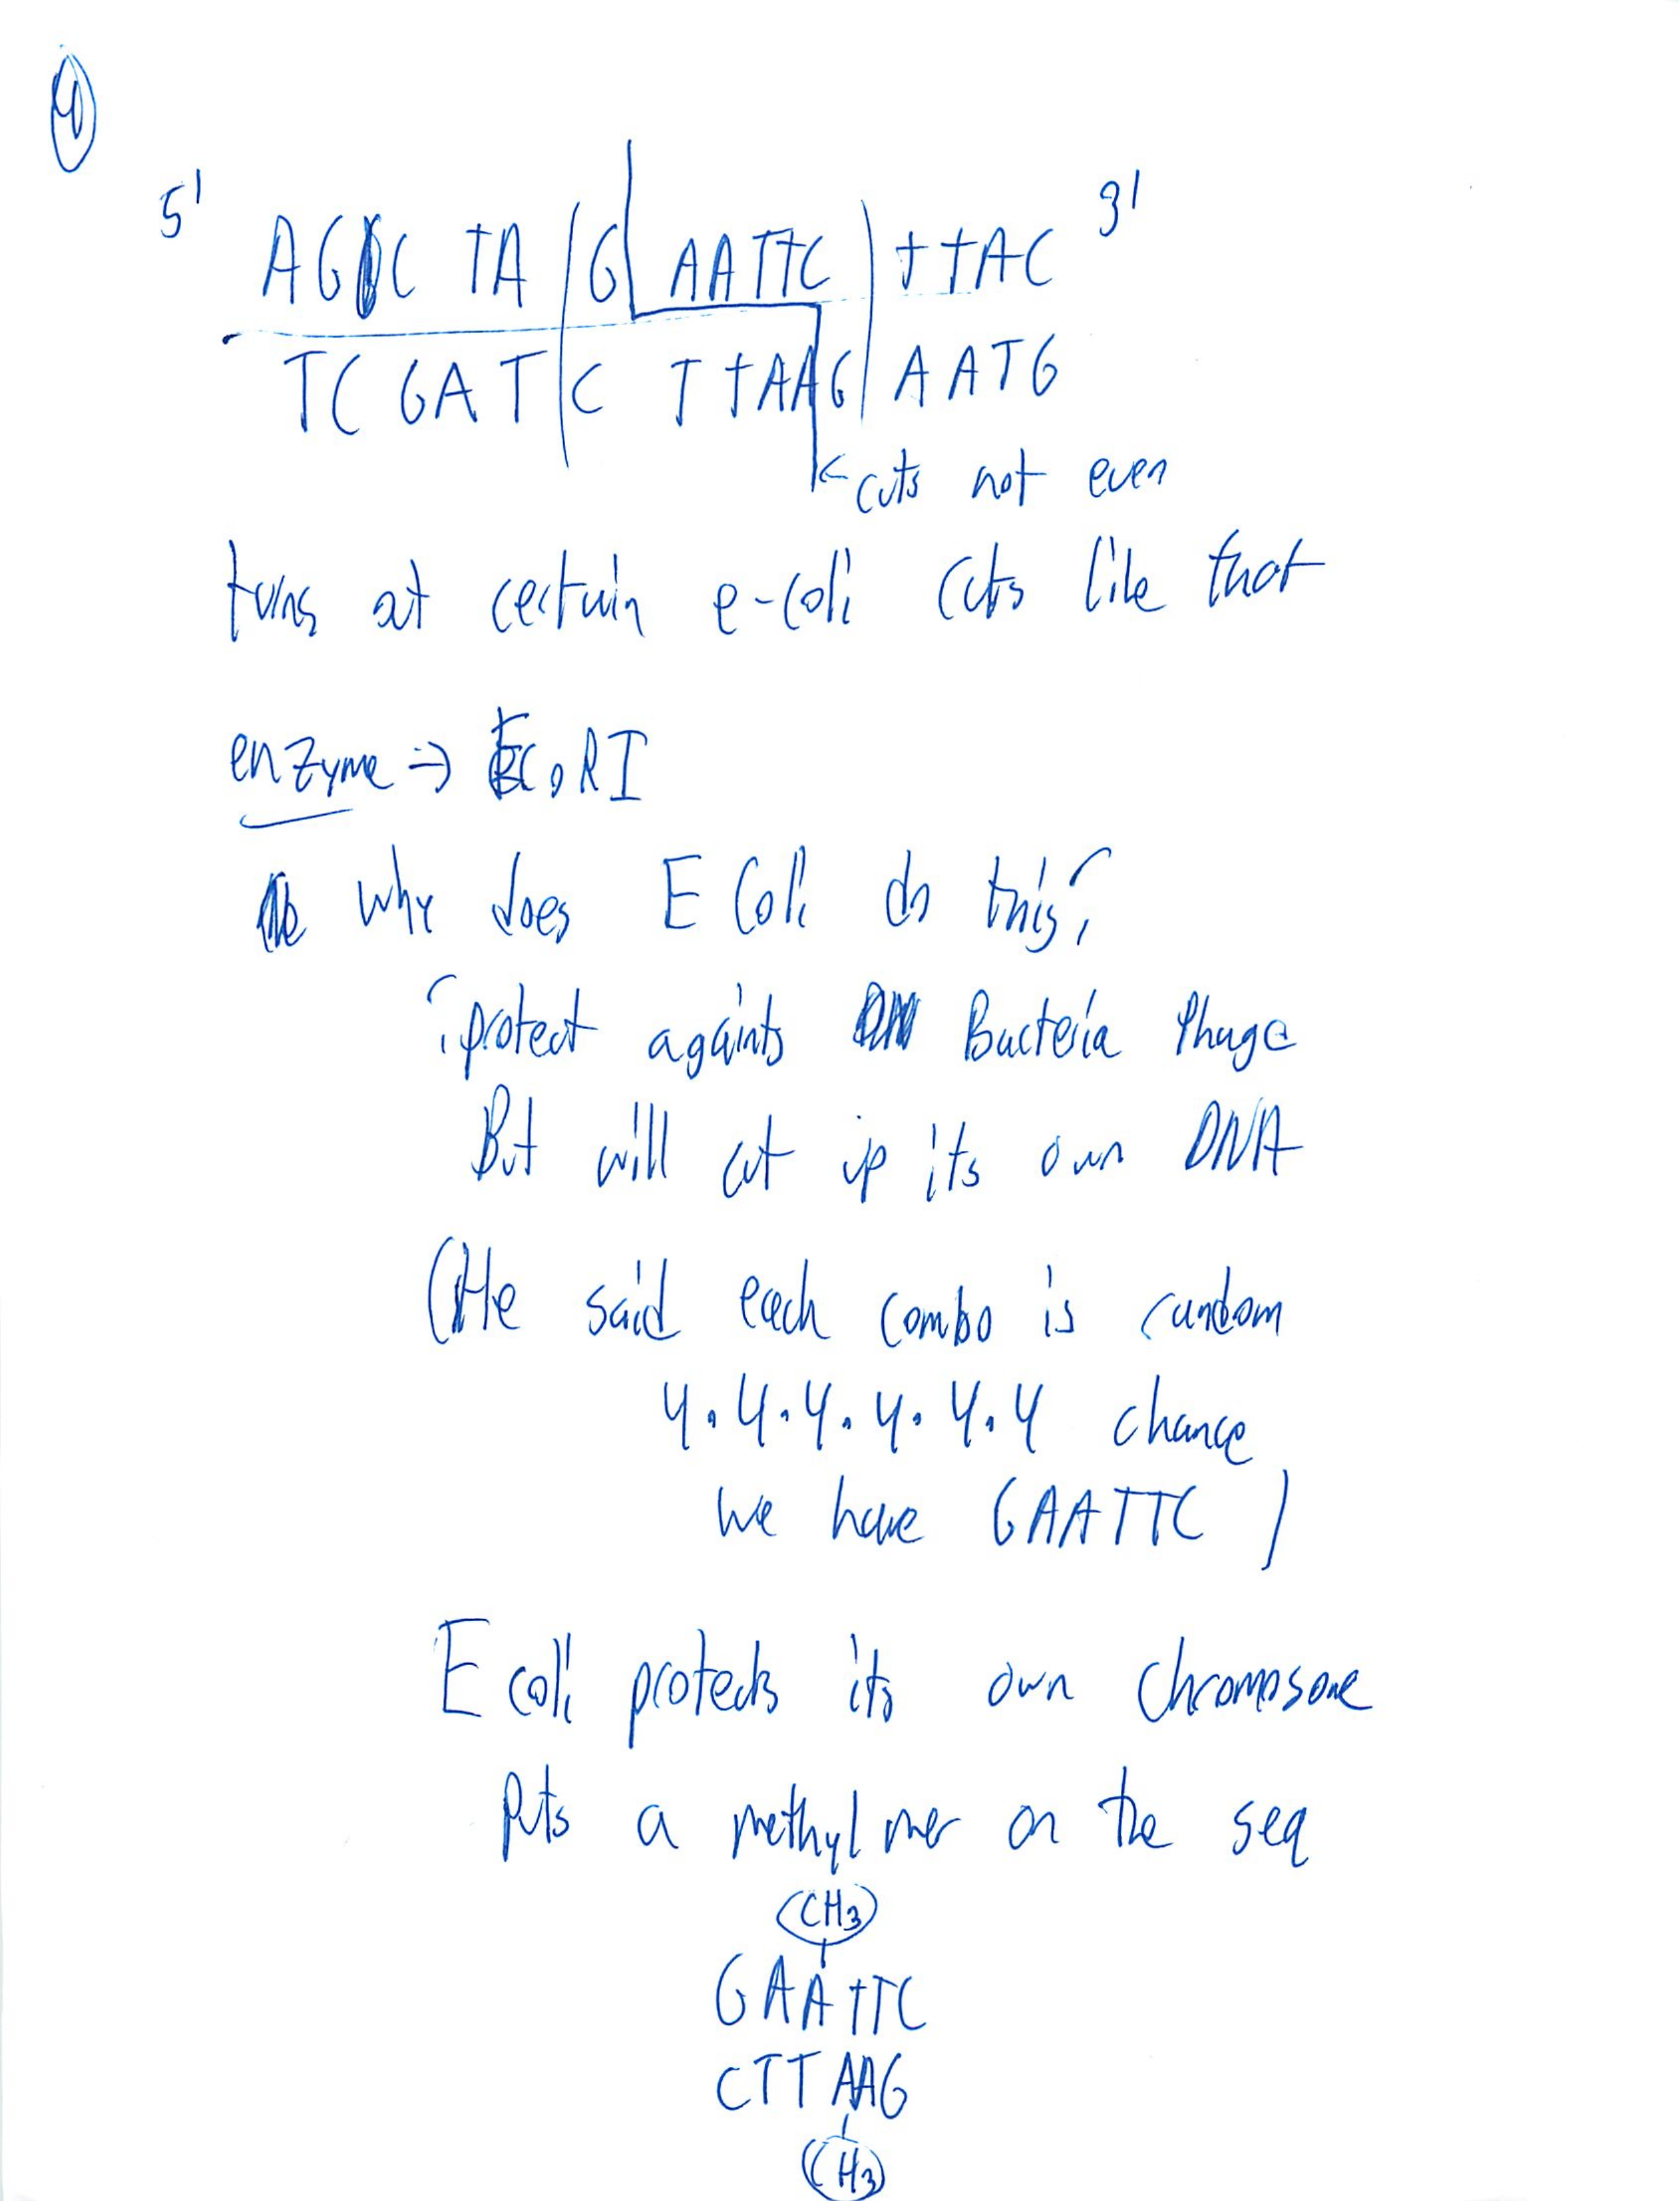 4
5' AGC TA G AATTC TTAC 3'
TCGAT C TTAAG AATG
← cuts not even
turns at certain e-coli cuts like that
enzyme ⇒ EcoRI
why does E Coli do this?
protect againts Bacteria Phage
But will cut up its own DNA
(He said each combo is random
4.4.4.4.4.4 chance
we have GAATTC)
E coli protects its own chromosome
Puts a methyl mer on the seq
CH3
GAATTC
CTTAAG
CH3